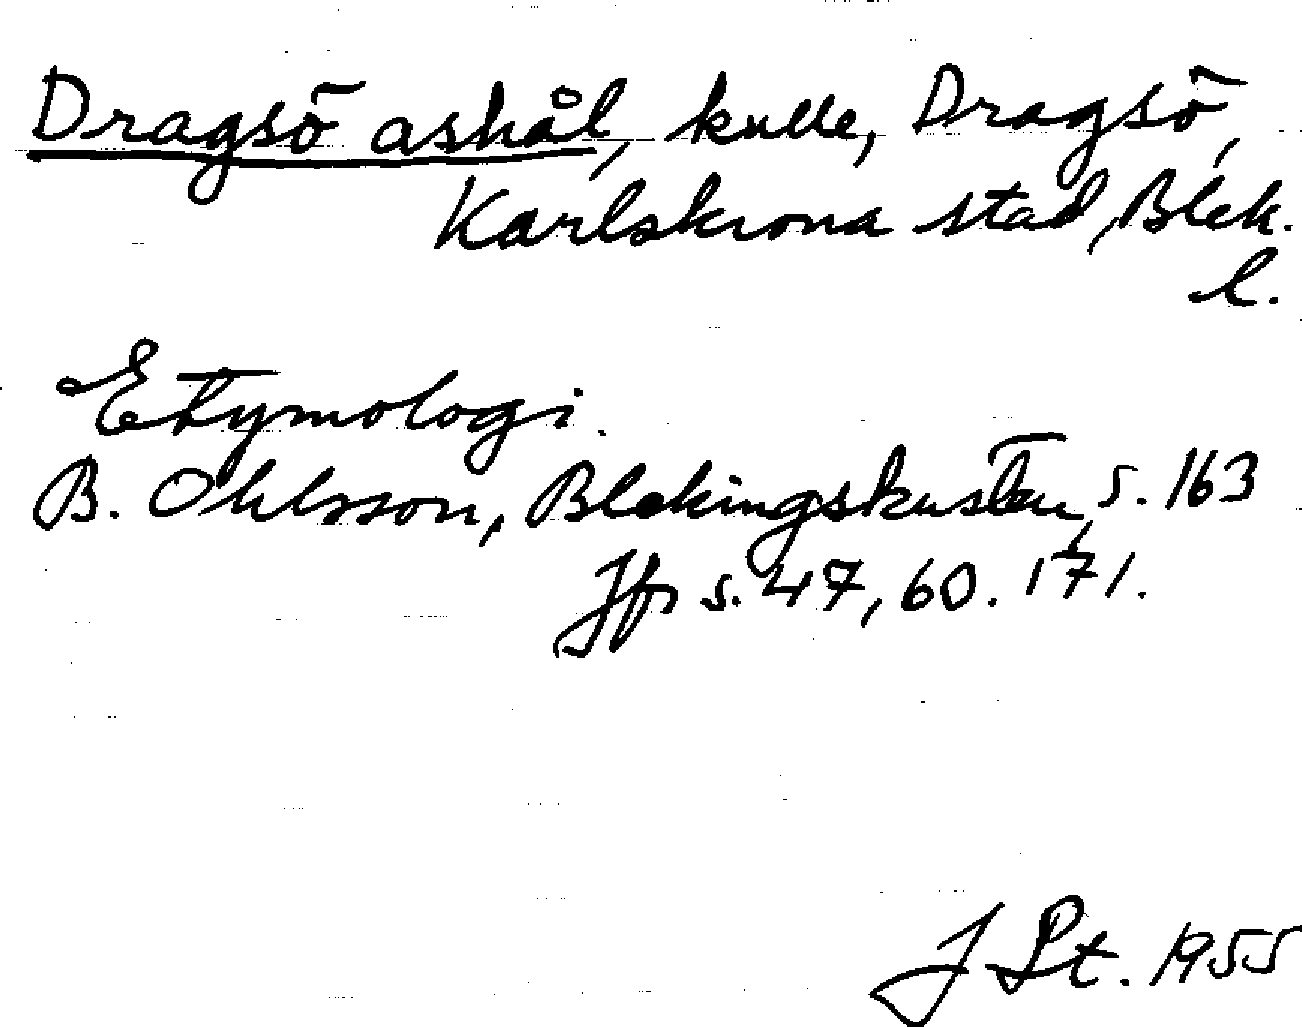 Dragsö ashål, kulle, Dragsö,
Karlskrona stad, Blek.
l.
Etymologi.
B. Ohlsson, Blekingskusten, s. 163
Jfr s. 47, 60. 171.
J St. 1955